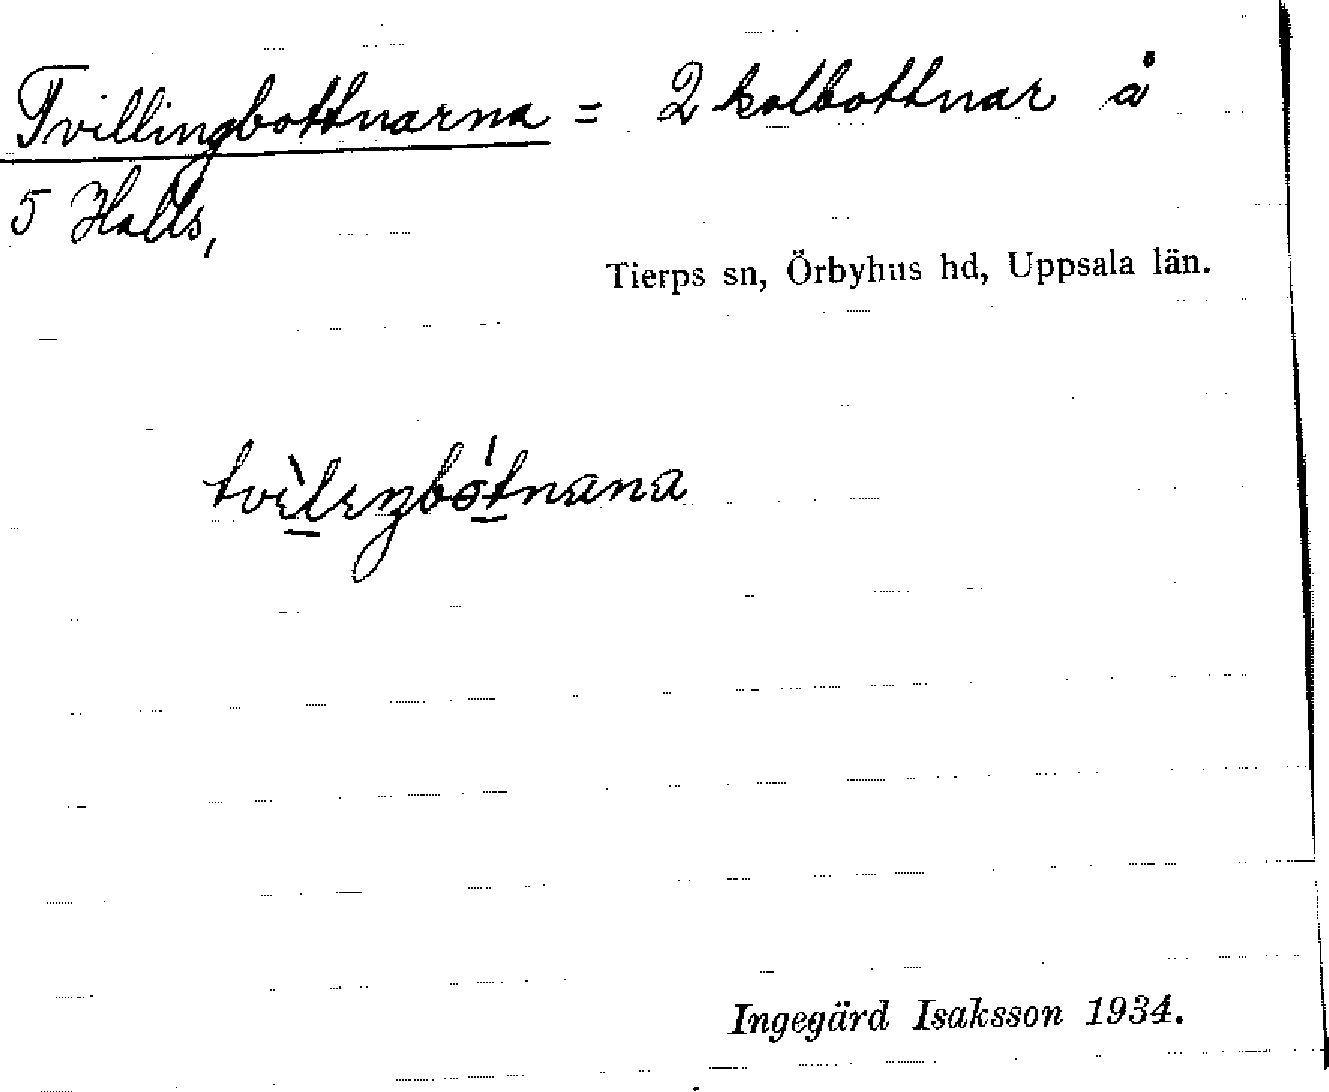 Tvillingbottnarna = 2 kolbottnar å
5 Halls,
Tierps sn, Örbyhus hd, Uppsala län.
tvìleŋbótnana
Ingegärd Isaksson 1934.